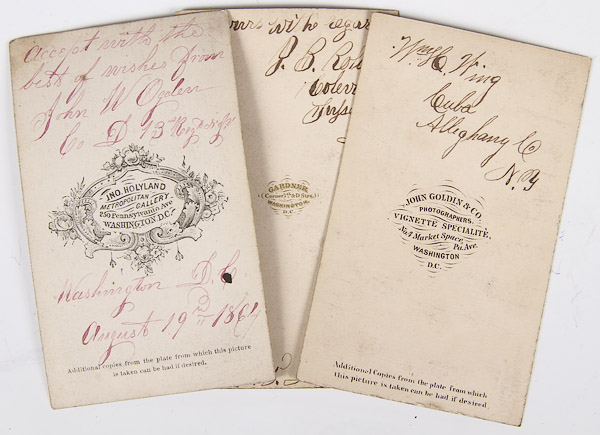 Accept with the
best of wishes from
John W Ogden
Co D 13th Regt
JNO. HOLYLAND
METROPOLITAN
GALLERY
250 Pennsylvania Ave
WASHINGTON D.C.
Washington D. C
August 19th 1864
Additional copies from the plate from which this picture
is taken can be had if desired.
Yours with regar
J. B.
GARDNER
Corner 7th & D Sts.
WASHINGTON
D.C
Wm H. Wing
Cuba
Alleghany Co
N. Y
JOHN GOLDIN & CO.
PHOTOGRAPHERS.
VIGNETTE SPECIALITE,
No. 4 Market Space, Pa. Ave.
WASHINGTON
D.C.
Additional Copies from the plate from which
this picture is taken can be had if desired